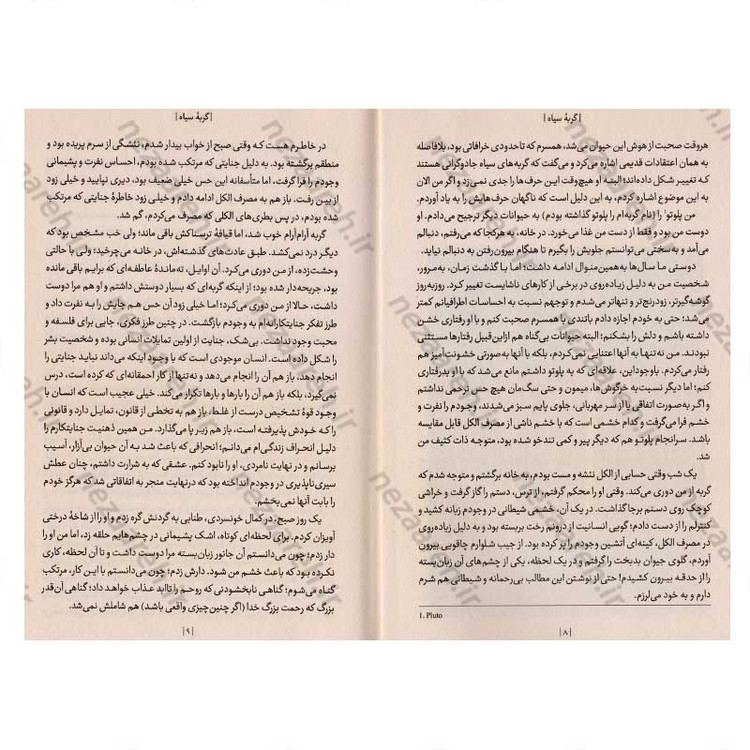 |گربهٔ سیاه|
هروقت صحبت از هوش این حیوان می‌شد، همسرم که تاحدودی خرافاتی بود، بلافاصله
به همان اعتقادات قدیمی اشاره می‌کرد و می‌گفت که گربه‌های سیاه جادوگرانی هستند
که تغییر شکل داده‌اند؛ البته او هیچ‌وقت این حرف‌ها را جدی نمی‌زد و اگر من الان
به این موضوع اشاره کردم، به این دلیل است که ناگهان حرف‌هایش را به یاد آوردم.
من پلوتو¹ را (نام گربه‌ام را پلوتو گذاشته بودم) به حیوانات دیگر ترجیح می‌دادم. او
دوست من بود و فقط از دست من غذا می‌خورد. در خانه، به هرکجا که می‌رفتم، دنبالم
می‌آمد و به‌سختی می‌توانستم جلویش را بگیرم تا هنگام بیرون‌رفتن به دنبالم نیاید.
دوستی ما سال‌ها به‌همین‌منوال ادامه داشت؛ اما با گذشت زمان، به‌مرور،
شخصیت من به دلیل زیاده‌روی در برخی از کارهای ناشایست تغییر کرد. روزبه‌روز
گوشه‌گیرتر، زودرنج‌تر و تنهاتر می‌شدم و توجهم نسبت به احساسات اطرافیانم کمتر
می‌شد؛ حتی به خودم اجازه دادم باتندی با همسرم صحبت کنم و با او رفتاری خشن
داشته باشم و دلش را بشکنم؛ البته حیوانات بی‌گناه هم ازاین‌قبیل رفتارها مستثنی
نبودند. من نه‌تنها به آنها اعتنایی نمی‌کردم، بلکه با آنها به‌صورتی خشونت‌آمیز هم
رفتار می‌کردم. باوجوداین، علاقه‌ای که به پلوتو داشتم مانع می‌شد که با او بدرفتاری
کنم؛ اما دیگر نسبت به خرگوش‌ها، میمون و حتی سگ‌مان هیچ حس ترحمی نداشتم
و اگر به‌صورت اتفاقی یا از سر مهربانی، جلوی پایم سبز می‌شدند، وجودم را نفرت و
خشم فرا می‌گرفت و کدام خشمی است که با خشم ناشی از مصرف الکل قابل مقایسه
باشد. سرانجام پلوتو هم که دیگر پیر و کمی تندخو شده بود، متوجه ذات کثیف من
شد.
یک شب وقتی حسابی از الکل نئشه و مست بودم، به خانه برگشتم و متوجه شدم که
گربه از من دوری می‌کند. وقتی او را محکم گرفتم، از ترس، دستم را گاز گرفت و خراشی
کوچک روی دستم برجا گذاشت. در یک آن، خشمی شیطانی در وجودم زبانه کشید و
کنترلم را از دست دادم؛ گویی انسانیت از درونم رخت بربسته بود و به دلیل زیاده‌روی
در مصرف الکل، کینه‌ای آتشین وجودم را پر کرده بود. از جیب شلوارم چاقویی بیرون
آوردم، گلوی حیوان بدبخت را گرفتم و در یک لحظه، یکی از چشم‌های آن زبان‌بسته
را از حدقه بیرون کشیدم! حتی از نوشتن این مطالب بی‌رحمانه و شیطانی هم شرم
دارم و به خود می‌لرزم.
1. Pluto
|۸|
|گربهٔ سیاه|
در خاطرم هست که وقتی صبح از خواب بیدار شدم، نئشگی از سرم پریده بود و
منطقم برگشته بود. به دلیل جنایتی که مرتکب شده بودم، احساس نفرت و پشیمانی
وجودم را فرا گرفت، اما متأسفانه این حس خیلی ضعیف بود، دیری نپایید و خیلی زود
از بین رفت. باز هم به مصرف الکل ادامه دادم و خیلی زود خاطرهٔ جنایتی که مرتکب
شده بودم، در پس بطری‌های الکلی که مصرف می‌کردم، گم شد.
گربه آرام‌آرام خوب شد، اما قیافهٔ ترسناکش باقی ماند؛ ولی خب مشخص بود که
دیگر درد نمی‌کشد. طبق عادت‌های گذشته‌اش، در خانه می‌چرخید؛ ولی با حالتی
وحشت‌زده، از من دوری می‌کرد. آن اوایل، ته‌ماندهٔ عاطفه‌ای که برایم باقی مانده
بود، جریحه‌دار شده بود؛ از اینکه گربه‌ای که بسیار دوستش داشتم و او هم مرا دوست
داشت، حالا از من دوری می‌کرد؛ اما خیلی زود آن حس هم جایش را به نفرت داد و
طرز تفکر جنایتکارانه‌ام به وجودم بازگشت. در چنین طرز فکری، جایی برای فلسفه و
محبت وجود نداشت. بی‌شک، جنایت از اولین تمایلات انسانی بوده و شخصیت بشر
را شکل داده است. انسان موجودی است که با وجود اینکه می‌داند نباید جنایتی را
انجام دهد، باز هم آن را انجام می‌دهد و نه‌تنها از کار احمقانه‌ای که کرده است، درس
نمی‌گیرد، بلکه باز هم آن را بارها و بارها تکرار می‌کند. خیلی عجیب است که انسان با
وجود قوهٔ تشخیص درست از غلط، باز هم به تخطی از قانون، تمایل دارد و قانونی
را که خودش پذیرفته است، باز هم زیر پا می‌گذارد. من همین ذهنیت جنایتکارم را
دلیل انحراف زندگی‌ام می‌دانم؛ انحرافی که باعث شد به آن حیوان بی‌آزار، آسیب
برسانم و در نهایت نامردی، او را نابود کنم. عشقی که به شرارت داشتم، چنان عطش
سیری‌ناپذیری در وجودم انداخته بود که درنهایت منجر به اتفاقاتی شد که هرگز خودم
را بابت آنها نمی‌بخشم.
یک روز صبح، در کمال خونسردی، طنابی به گردنش گره زدم و او را از شاخهٔ درختی
آویزان کردم. برای لحظه‌ای کوتاه، اشک پشیمانی در چشم‌هایم حلقه زد، اما من او را
دار زدم؛ چون می‌دانستم آن جانور زبان‌بسته مرا دوست داشت و تا آن لحظه، کاری
نکرده بود که باعث خشم من شود. دارش زدم؛ چون می‌دانستم با این کار، مرتکب
گناه می‌شوم؛ گناهی نابخشودنی که روحم را تاابد عذاب خواهد داد؛ گناهی آن‌قدر
بزرگ که رحمت بزرگ خدا (اگر چنین‌چیزی واقعی باشد) هم شاملش نمی‌شد.
|۹|
nezaareh.ir